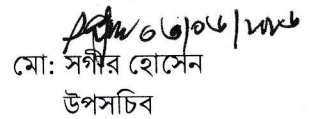 ০৬/০৬/২০২৬
মো: সগীর হোসেন
উপসচিব